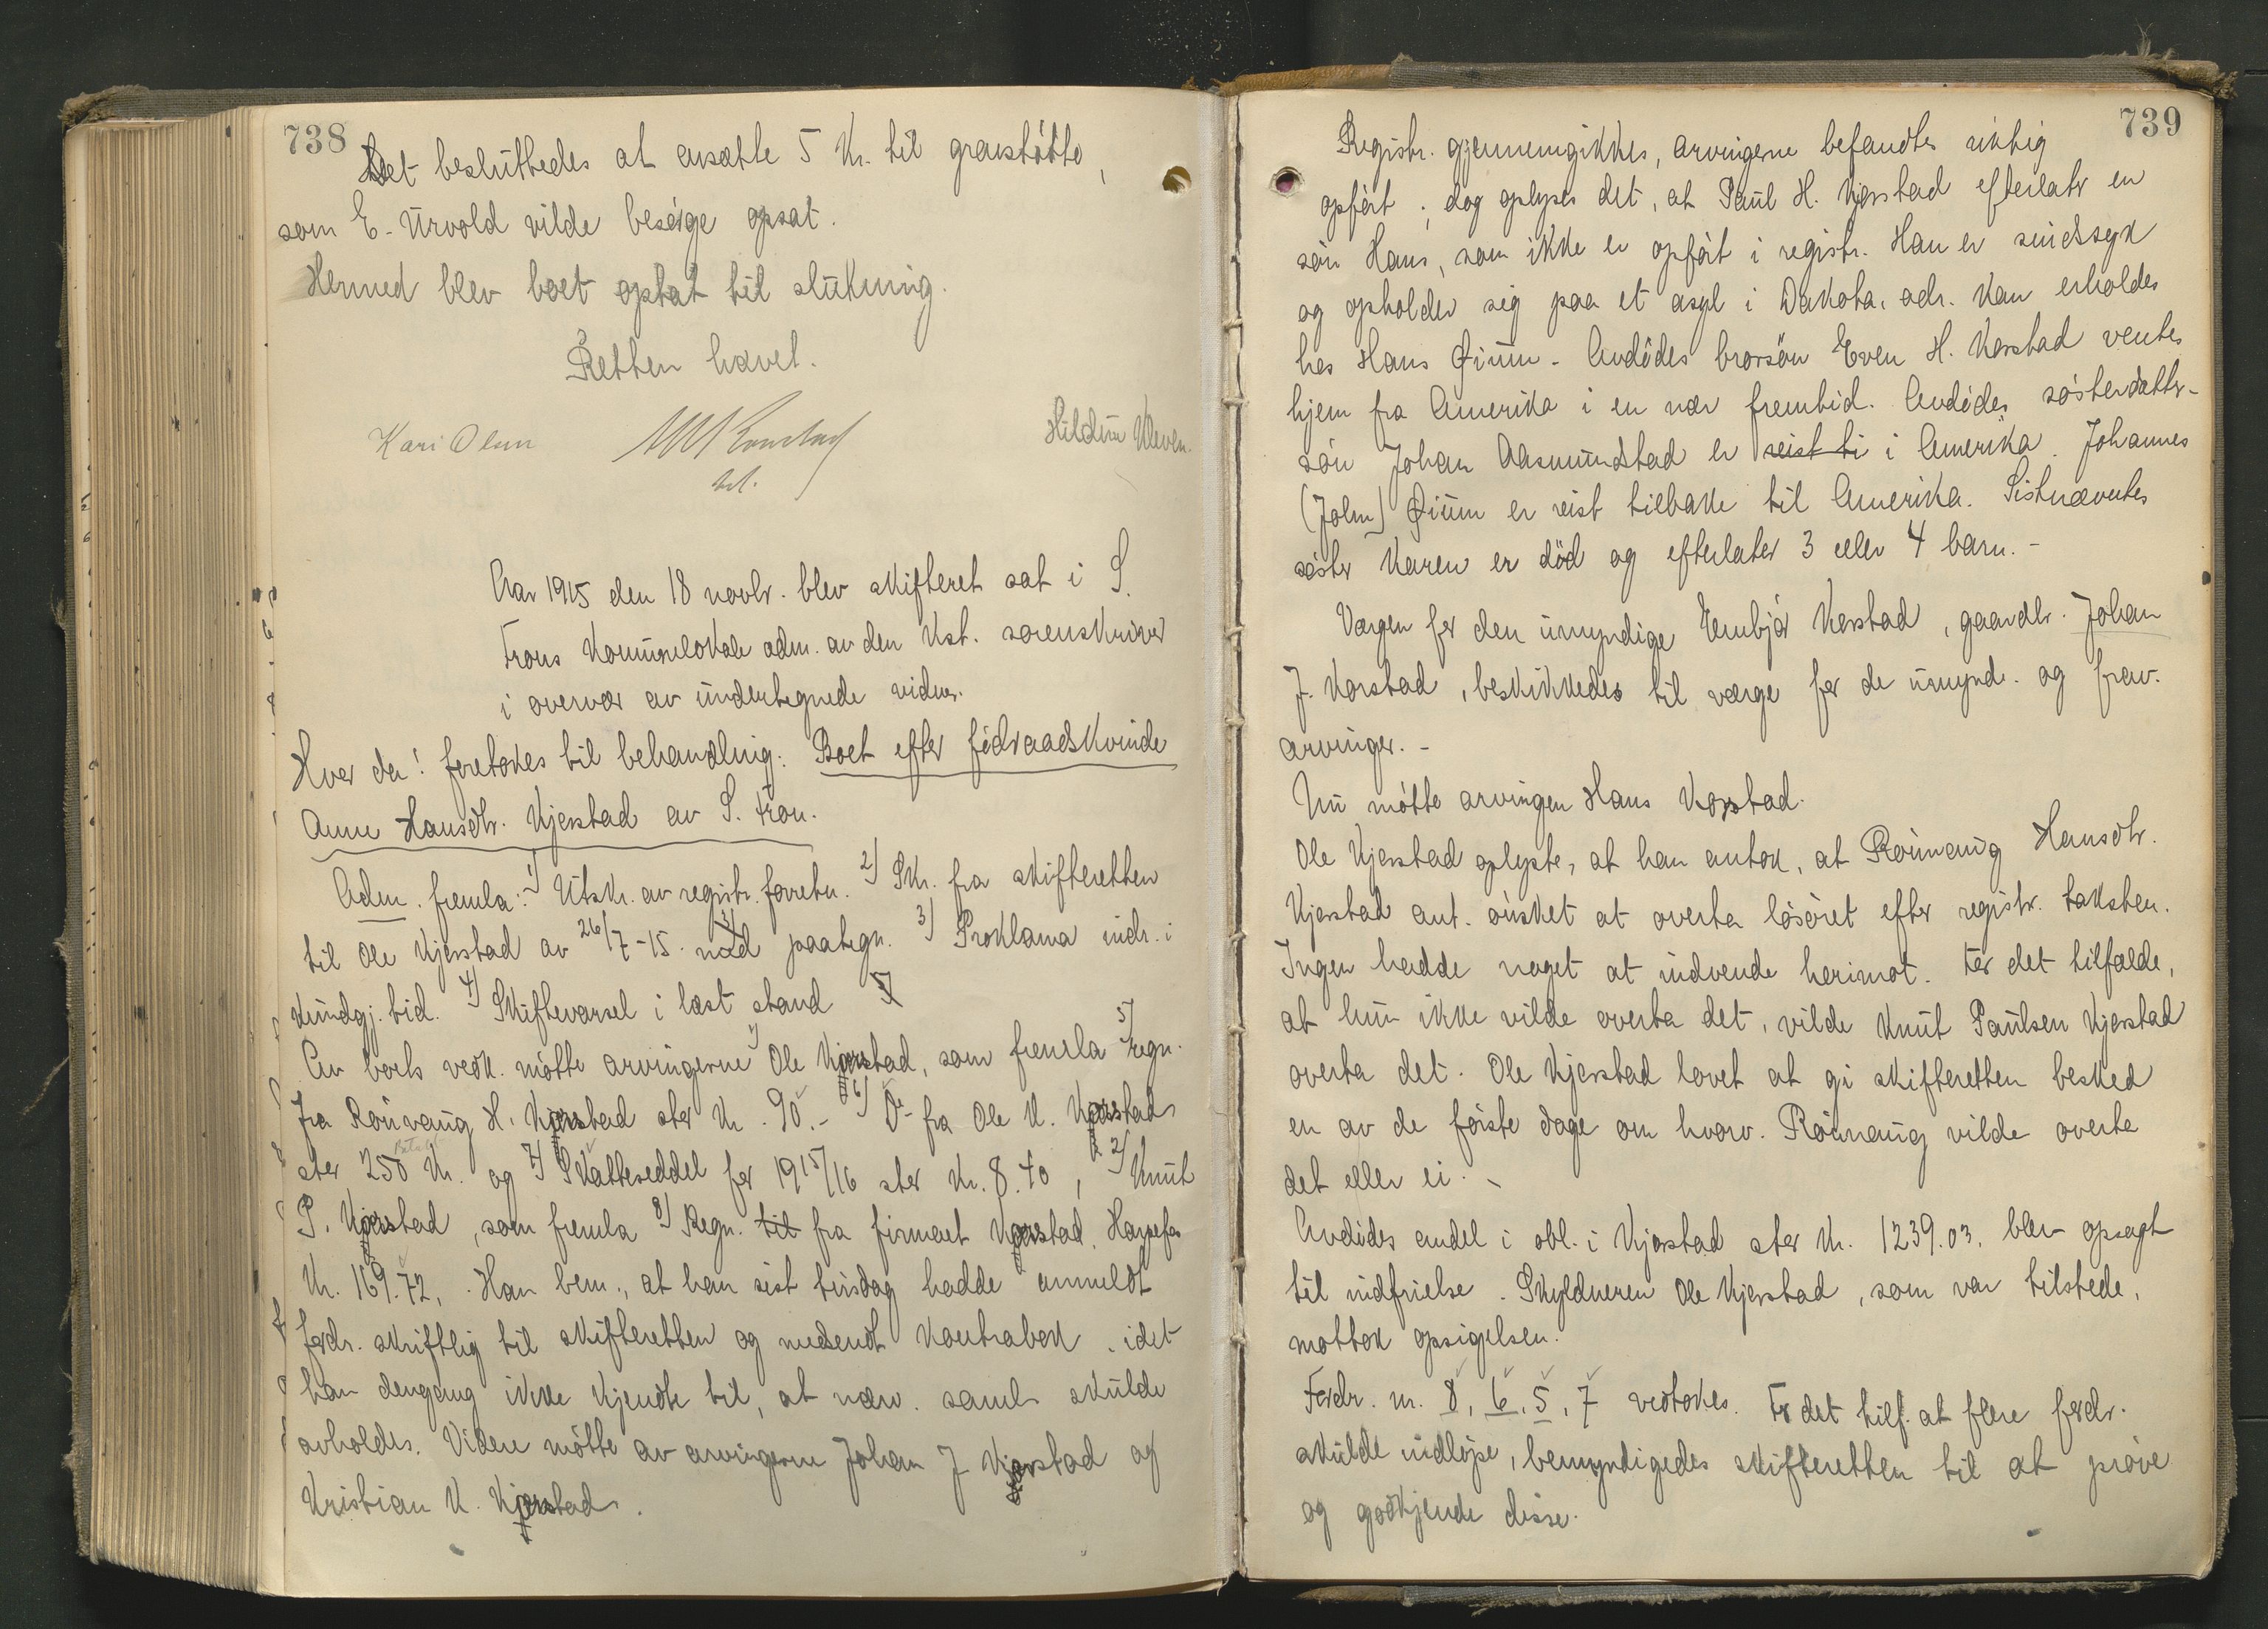 738
Det besluttedes at ansætte 5 Kr. til gravstøtte,
som E. Urvold vilde besørge opsat.
Hermed blev boet optat til slutning.
Retten hævet.
Kari Olsen
Hildur Kleven.
Aar 1915 den 18 novbr. blev skifteret sat i S.
Frons Kommunelokale adm. av den Kst. sorenskriver
i overvær av undertegnede vidner.
Hvor da! foretokes til behandling: Boet efter føderaadskvinde
Anne Hansdtr. Kjørstad av S. Fron.
Adm. fremla: 1) Utskr. av registr. forretn. 2) Skr. fra skifteretten
til Ole Kjørstad av 26/7-15. med paategn. 3) Proklama indr. i
Kundgj. tid. 4) Skiftevarsel i læst stand
Av boets vedk. møtte arvingerne 1) Ole Kjørstad, som fremla 5) regn.
fra Rønnaug H. Kjørstad stor Kr. 90.- 6) Do fra Ole K. Kjørstad
stor 250 Kr. og 7) Skatteseddel for 1915/16 stor Kr. 8.40, 2) Knut
P. Kjørstad, som fremla 8) Regn. til fra firmaet Kjørstad, Harpefos
Kr. 169.72. Han bem., at han sist tirsdag hadde anmeldt
fordr. skriftlig til skifteretten og medsendt Kontrabok, idet
han dengang ikke kjendte til, at nærv. saml. skulde
avholdes. Videre møtte av arvingerne Johan J. Kjørstad og
Kristian K. Kjørstad.
739
Registr. gjennemgikkes, arvingerne befandtes riktig
opført; dog oplyses det, at Paul H. Kjørstad efterlater en
søn Hans, som ikke er opført i registr. Han er sindssyk
og opholder sig paa et asyl i Dakota, adr. kan erholdes
hos Hans Øium. Avdødes brorsøn Even H. Kørstad ventes
hjem fra Amerika i en nær fremtid. Avdødes søsterdatter-
søn Johan Aasmundstad er reist ti i Amerika. Johannes
(John) Øium er reist tilbake til Amerika. Sistnævntes
søster Karen er död og efterlater 3 eller 4 barn. -
Værgen for den umyndige Embjør Kørstad, gaardbr. Johan
J. Kørstad, beskikkedes til værge for de umynd. og frav.
arvinger. -
Nu møtte arvingen Hans Kørstad.
Ole Kjørstad oplyste, at han antok, at Rønnaug Hansdtr.
Kjørstad ant. ønsket at overta løsøret efter registr. taksten.
Ingen hadde noget at indvende herimot. For det tilfælde,
at hun ikke vilde overta det, vilde Knut Paulsen Kjørstad
overta det. Ole Kjørstad lovet at gi skifteretten besked
en av de første dage om hvorv. Rønnaug vilde overta
det eller ei. -
Avdødes andel i obl. i Kjørstad stor Kr. 1239.03. blev opsagt
til indfrielse. Skyldneren Ole Kjørstad, som var tilstede,
mottok opsigelsen.
Fordr. nr. 8, 6, 5, 7 vedtokes. For det tilf. at flere fordr.
skulde indløpe, bemyndigedes skifteretten til at prøve
og godkjende disse.